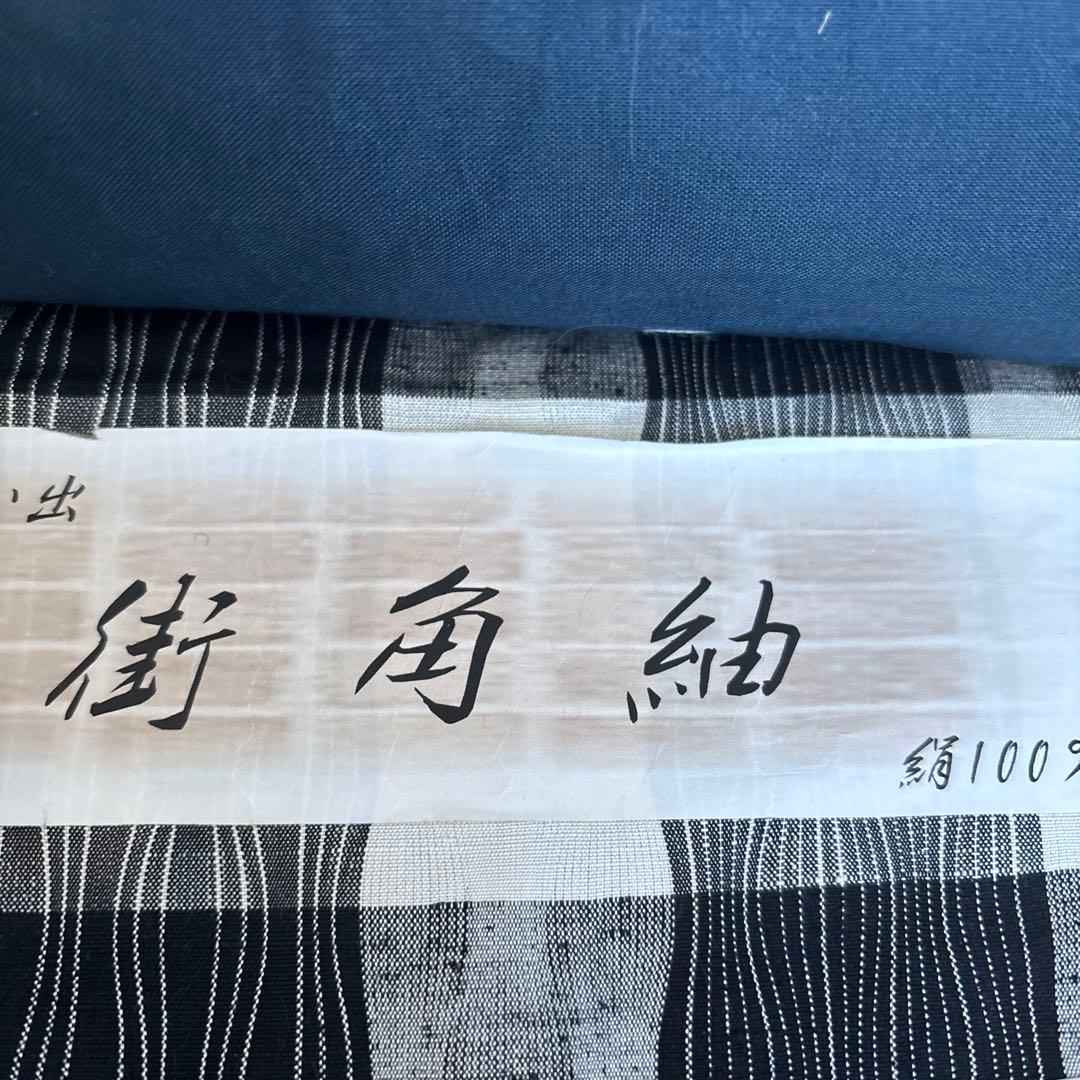 い出
街角紬
絹100%